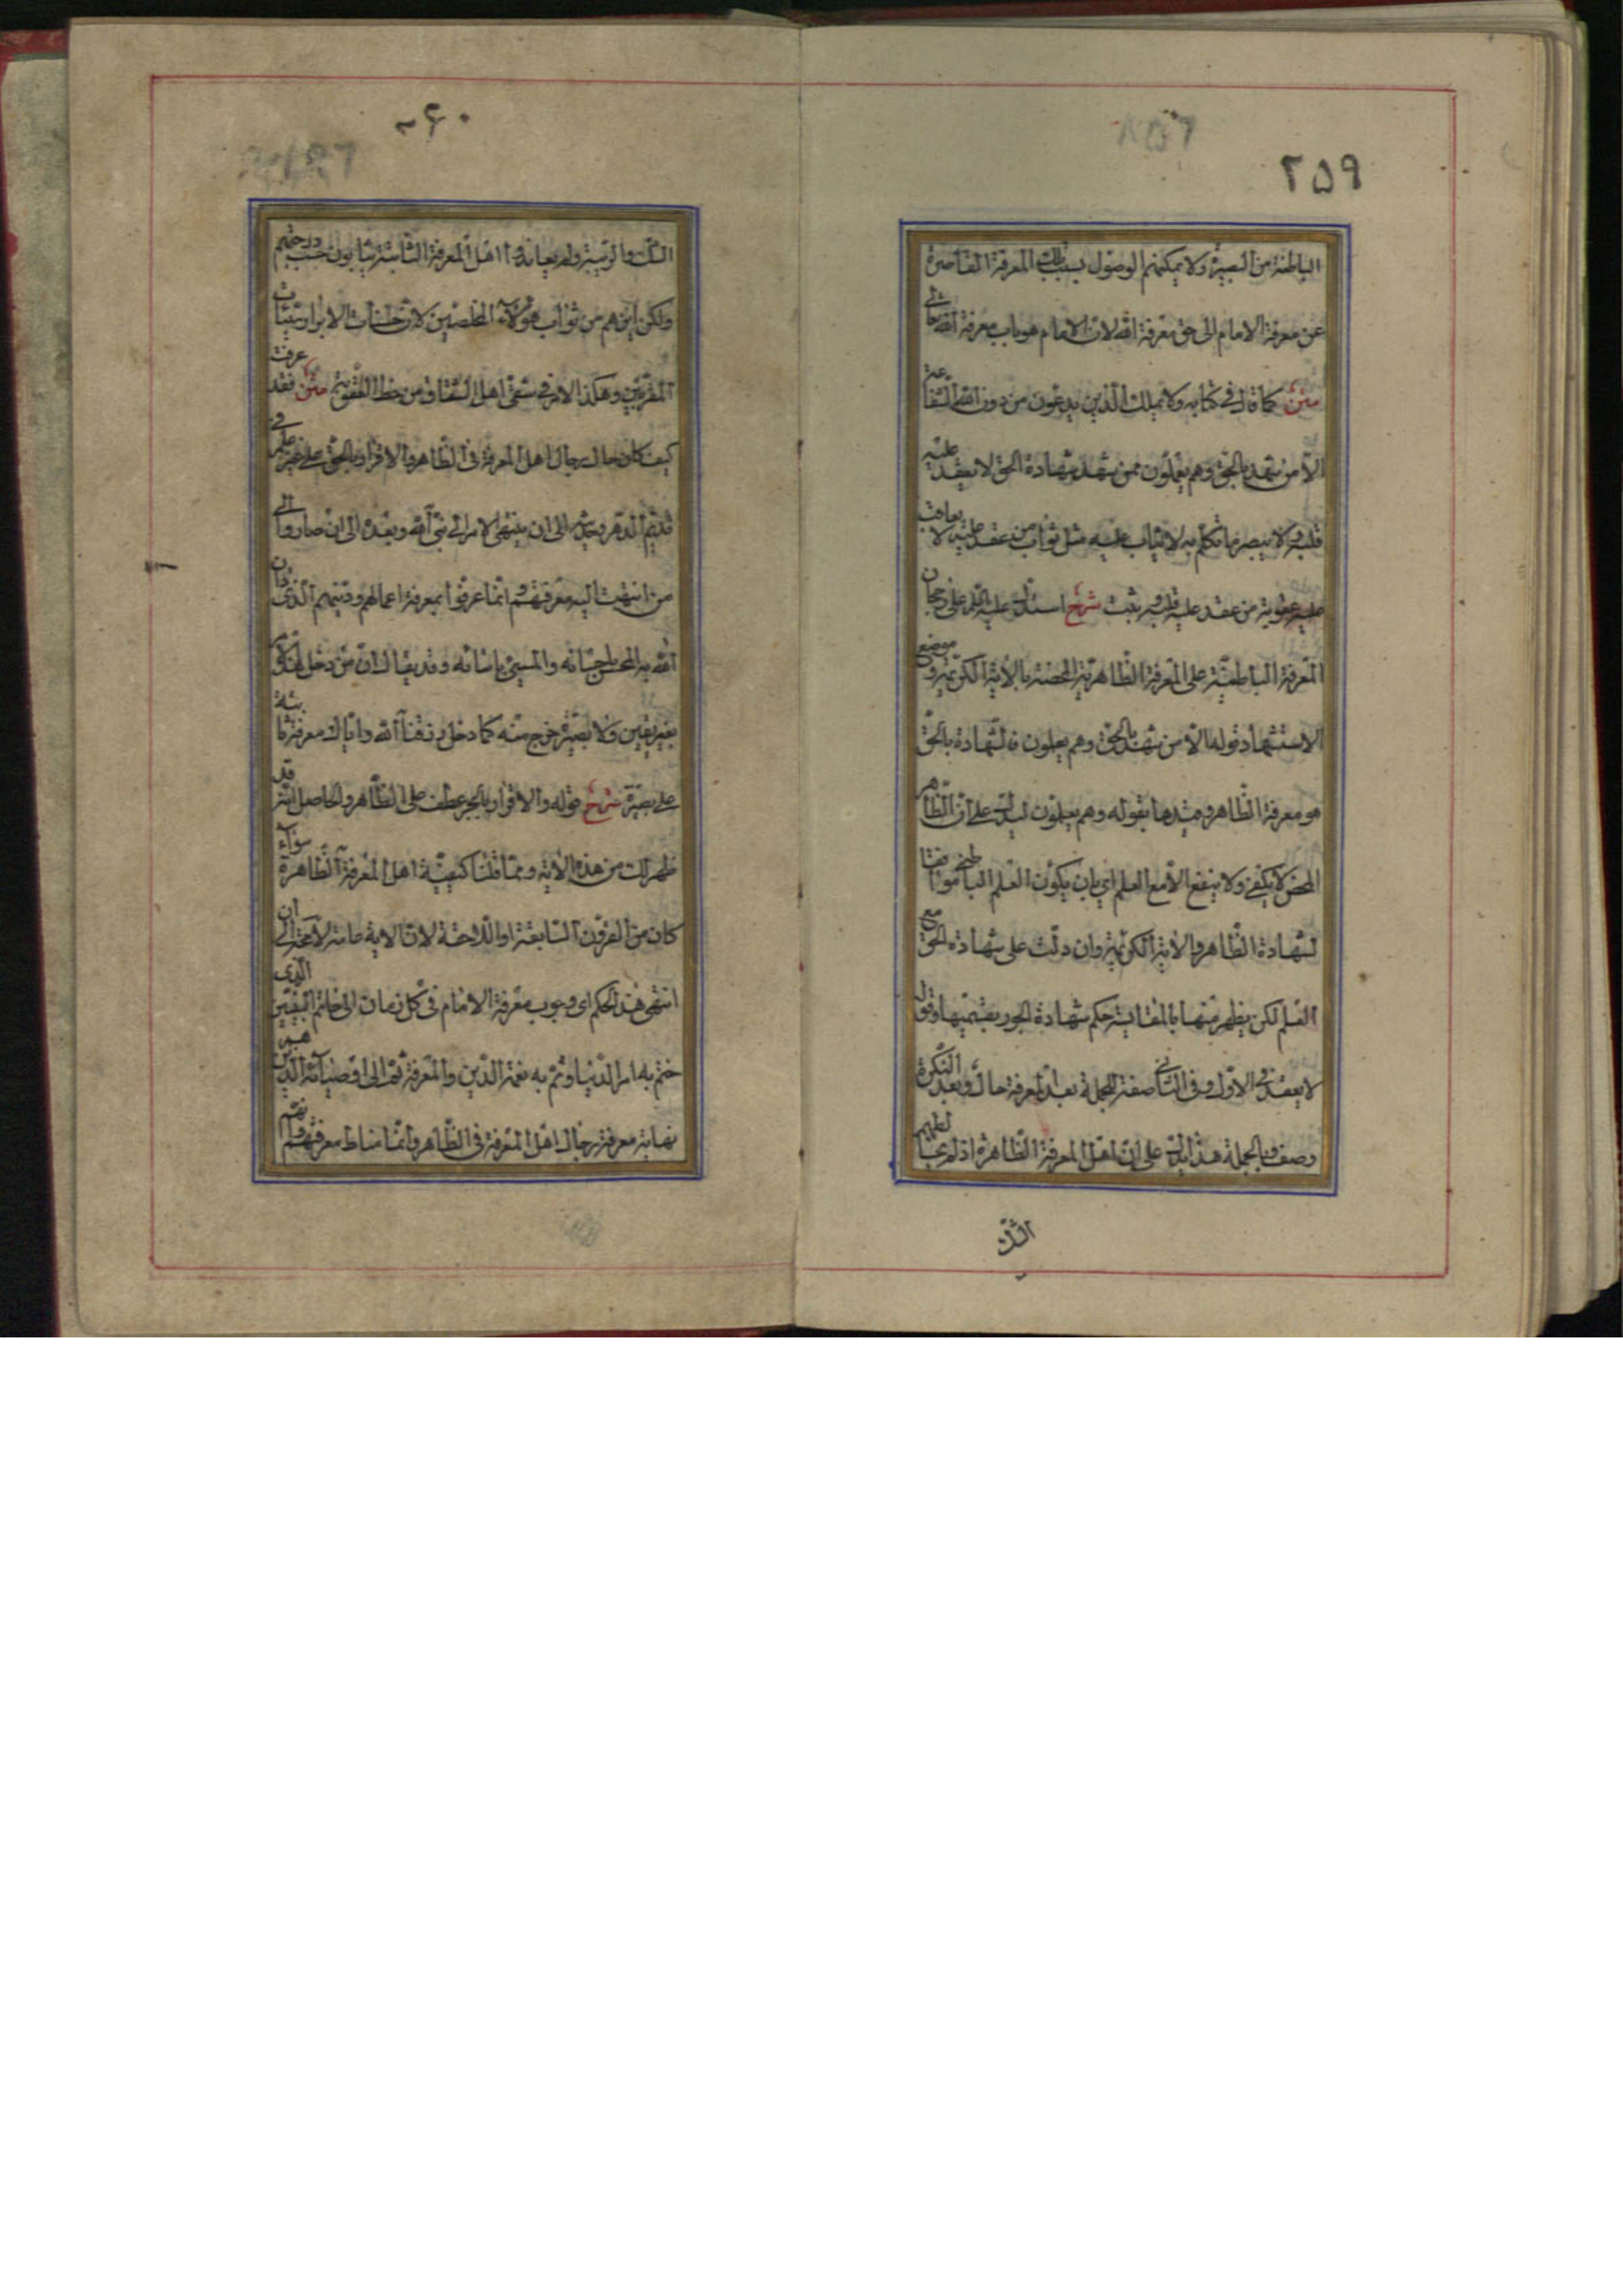 ٢٥٩
الباطنة من البصيرة ولا يمكنهم الوصول بسبب تلك المعرفة القاصرة
عن معرفة الامام الى حق معرفة الله لان الامام هو باب معرفة الله تعالى
متن كما قال في كتابه ولا يملك الذين يدعون من دون الله الشفاعة
الا من شهد بالحق وهم يعلمون فمن شهد شهادة الحق لا يعقد عليه
قلبه ولا يبصر ما يتكلم به لا يثاب عليه مثل ثواب من عقد عليه لا يعاقب
عليه عقوبة من عقد عليه قلبه وثبت شرح استدل عليه السلم على رجحان
المعرفة الباطنية على المعرفة الظاهرية المحضة بالاية الكريمة وموضع
الاستشهاد قوله الا من شهد بالحق وهم يعلمون فالشهادة بالحق
هو معرفة الظاهر وقيدها بقوله وهم يعلمون ليدل على ان الظاهر
المحض لا يكفي ولا ينفع الا مع العلم اي بان يكون العلم الباطني موافقا
لشهادة الظاهر والاية الكريمة وان دلت على شهادة الحق مع
العلم لكن يظهر منها بالمقايسة حكم شهادة الجور بقسميها وقوله
لا يعقد في الاول وفي الثاني صفة الجملة بعد المعرفة حال وبعد النكرة
وصف وبالجملة هذا يدل على ان اهل المعرفة الظاهرة اذ لم يخالطهم
الشك
٢٦٠
الشك والريبة ولم يعاندوا اهل المعرفة الثابتة يثابون حسب درجتهم
ولكن اين هم من ثواب هؤلاء المخلصين لان حسنات الابرار سيئات
المقربين وهكذا الامر في شقي اهل الشقاق من حظ العقوبة متن فقد عرفت
كيف كان حال رجال اهل المعرفة في الظاهر والاقرار بالحق على غير علم في
قديم الدهر وحديثه الى ان ينتهى الامر الى نبي الله وبعده الى ان صاروا الى
من انتهت اليه معرفتهم وانما عرفوا بمعرفة اعمالهم ودينهم الذي دان
الله به المحسن باحسانه والمسيئ باسائته وقد يقال ان من دخل في هذا الامر
بغير يقين ولا بصيرة خرج منه كما دخل رزقنا الله واياك معرفة ثابتة
على بصيرة شرح قوله والاقرار بالجر عطف على الظاهر والحاصل انه قد
ظهر لك من هذه الاية ومما قلنا كيفية اهل المعرفة الظاهرة سوآء
كان من القرون السابقة او اللاحقة لان الاية عامة الى ان
انتهى هذا الحكم اي وجوب معرفة الامام في كل زمان الى خاتم النبيين الذي
ختم به امر الدنيا وتم به نعمة الدين والمعرفة ثم الى اوصيائه الذين هم
نهاية معرفة رجال اهل المعرفة في الظاهر وانما مناط معرفتهم